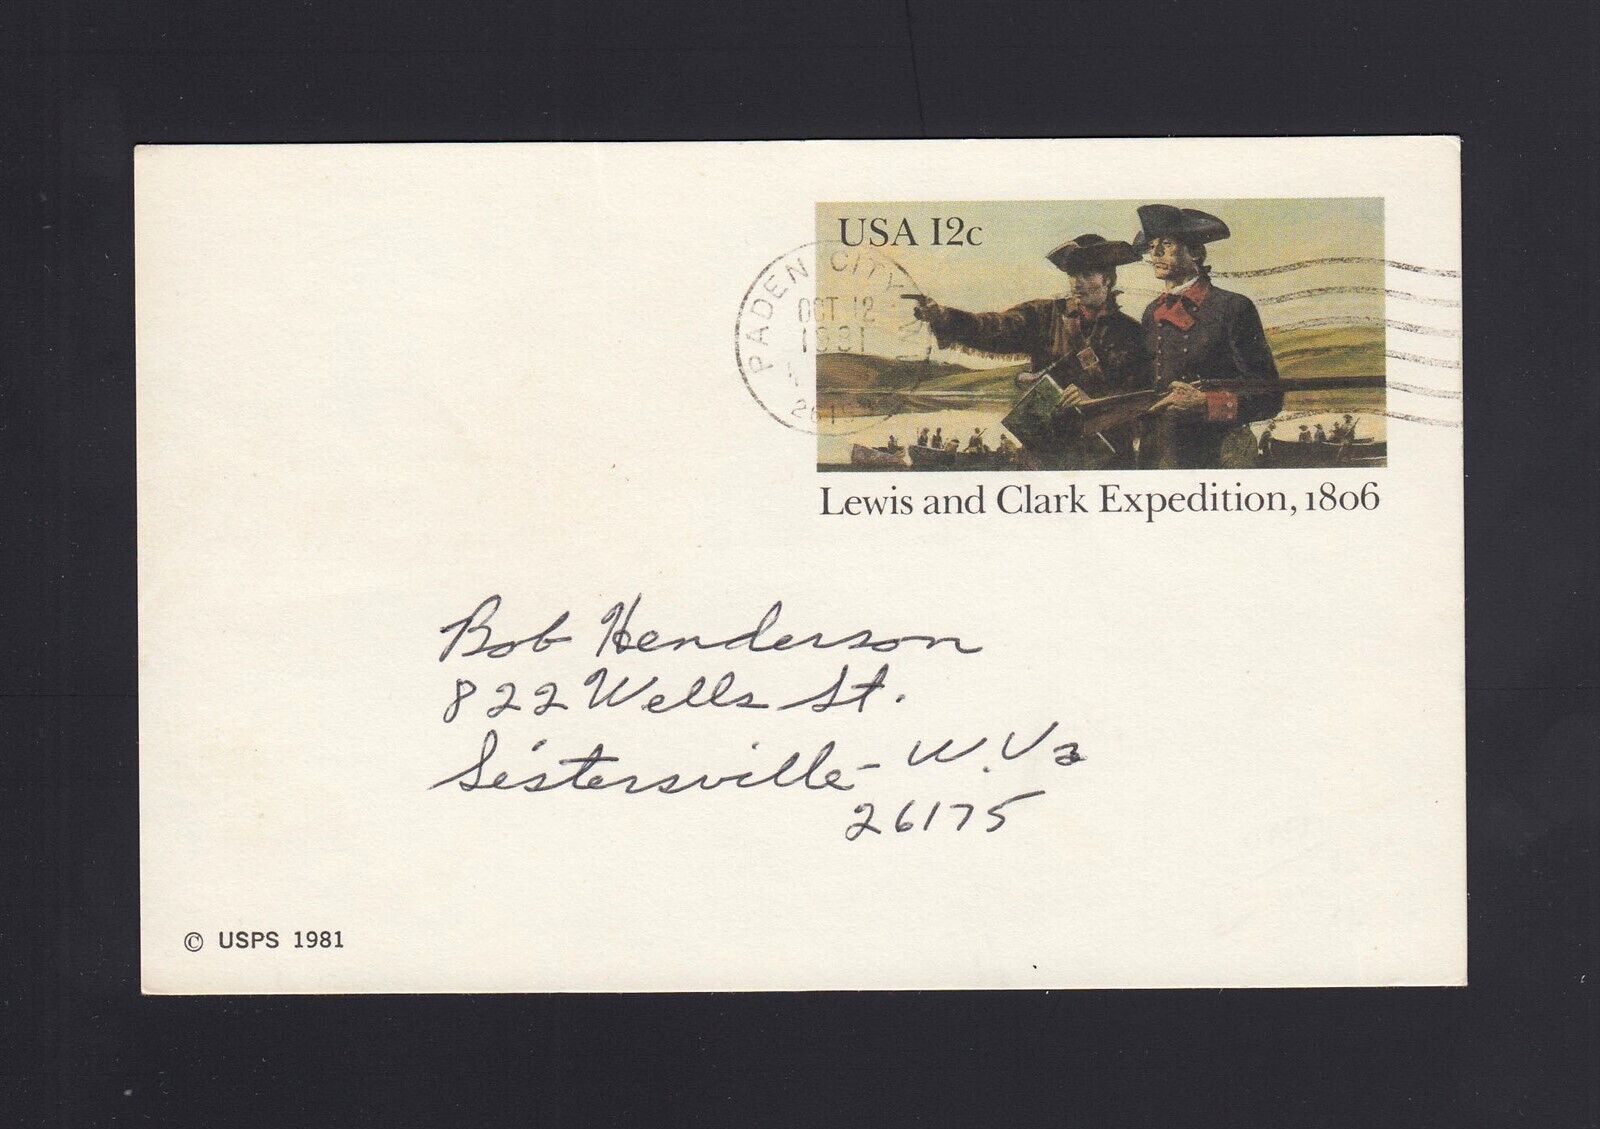 USA 12c
PADEN CITY
OCT 12
1981
Lewis and Clark Expedition, 1806
Bob Henderson
822 Wells St.
Sistersville - W. Va
26175
© USPS 1981